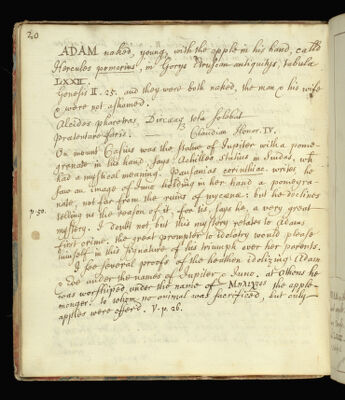 20
ADAM naked, young, with the apple in his hand; calld
Hercules pomarius, in Gorys Etruscan antiquitys, tabula
LXXII.
Genesis II. 25. and they were both naked, the man & his wife
& were not ashamed.
Alcides pharetras, Dircæaq tela solebat
pretentare feris. — Claudian Honor. IV.
On mount Casius was the statue of Jupiter with a pome-
granate in his hand, says Achilles Statius in Suidas, wh
had a mystical meaning. Pausanias corinthiac. writes he
saw an image of Juno holding in her hand a pomegra-
nate, not far from the ruins of mycenæ: but he declines
telling us the reason of it; for tis, says he, a very great
p.50. mystery. I doubt not, but this mystery relates to Adams
first crime. the great prompter to idolatry would please
himself in this signature of his triumph over her parents.
I see several proofs of the heathen idolizing Adam
& Eve under the names of Jupiter & Juno. at Athens he
was worshipped under the name of the apple
monger: to whom no animal was sacrificed, but only
apples were offerd. V. p. 26.